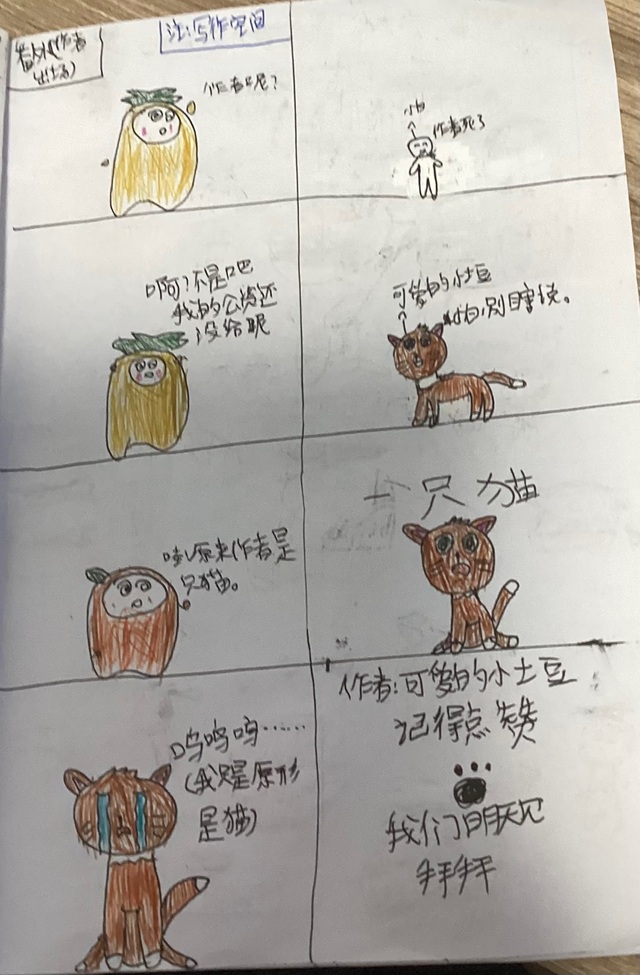 番外(作者
出场)
注:写作空间
作者呢?
小白
作者死了
啊?不是吧
我的公货还
没给呢
可爱的小土豆
小白,别瞎说。
哇,原来作者是
只猫。
一只猫
呜呜呜……
(我只是原形
是猫)
作者:可爱的小土豆
记得点赞
我们明天见
拜拜